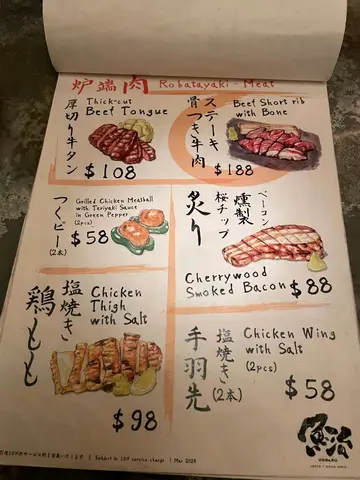 炉端肉 Robatayaki - Meat
厚切り牛タン
Thick-cut
Beef Tongue
$108
ステーキ
骨つき牛肉
Beef Short rib
with Bone
$188
つくピー
(2本)
Grilled Chicken Meatball
with Teriyaki Sauce
in Green Pepper
(2pcs)
$58
ベーコン
燻製
桜チップ
炙り
Cherrywood
Smoked Bacon $88
塩焼き
鶏もも
Chicken
Thigh
with Salt
$98
塩焼き
手羽先
(2本)
Chicken Wing
with Salt
(2pcs)
$58
魚治
Subject to 10% service charge | Mar 2024